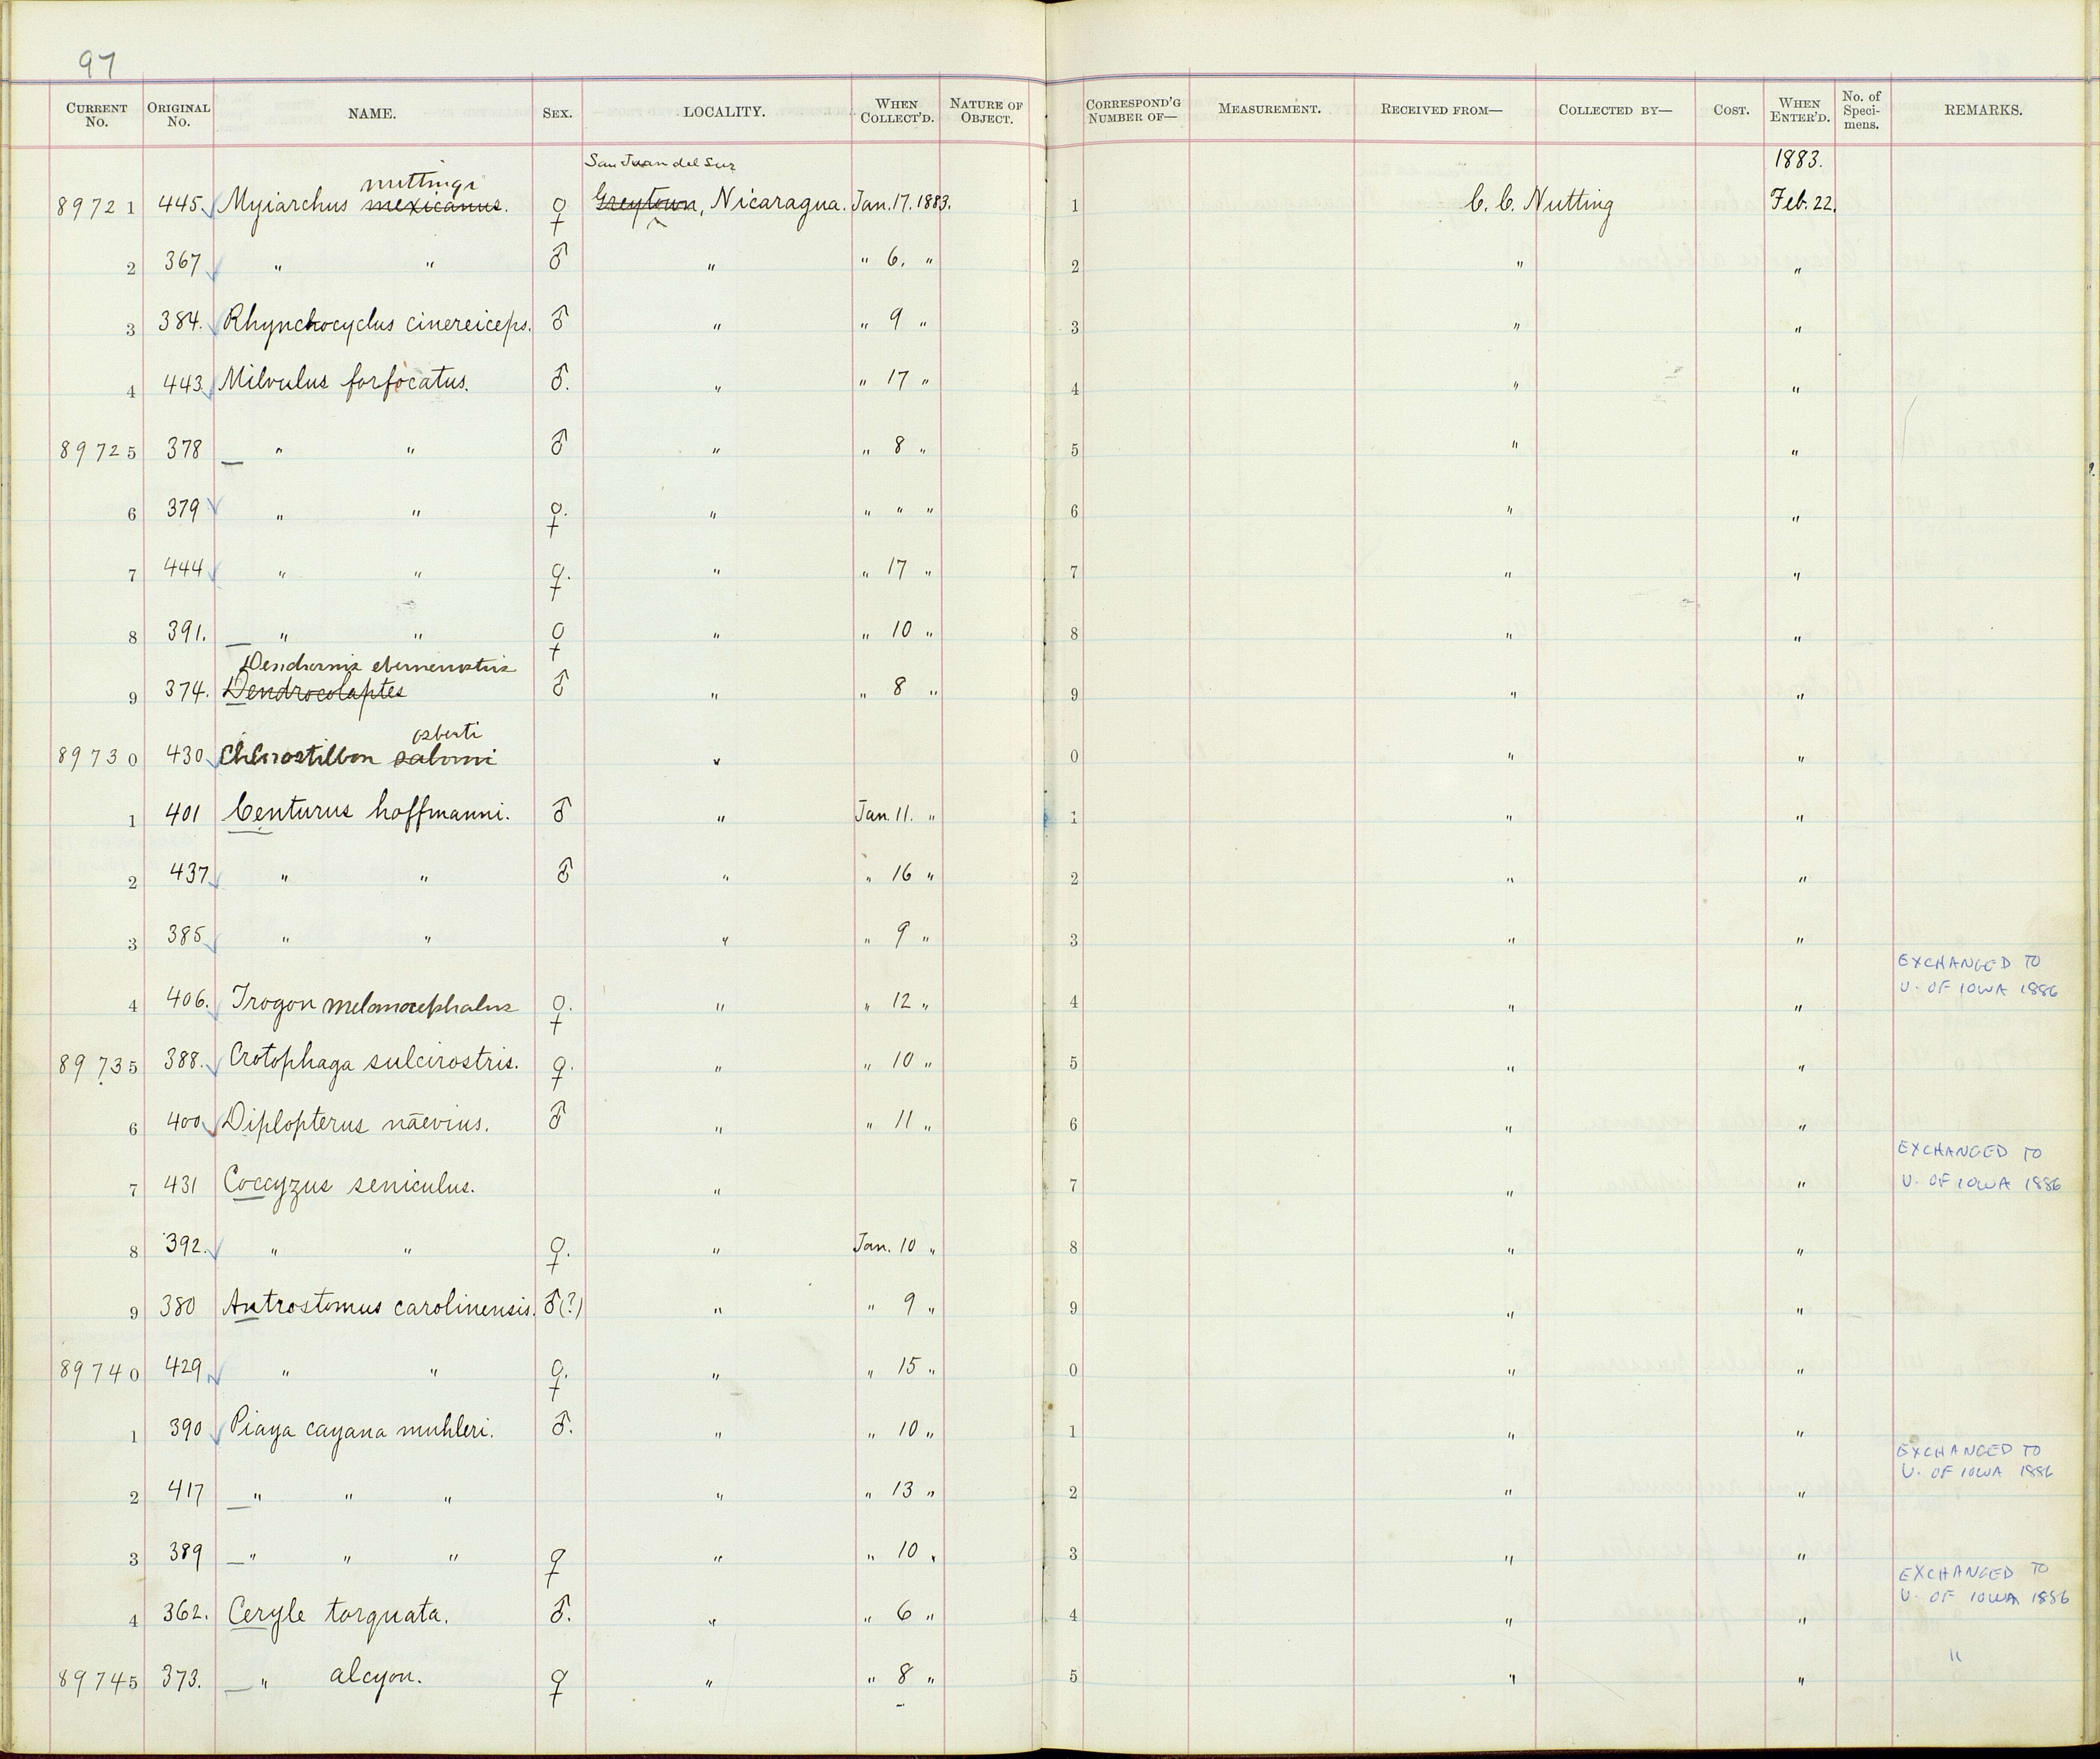 97
CURRENT No. ORIGINAL No. NAME. SEX. LOCALITY. WHEN COLLECT'D. NATURE OF OBJECT. CORRESPOND'G NUMBER OF— MEASUREMENT. RECEIVED FROM— COLLECTED BY— COST. WHEN ENTER'D. No. of Specimens. REMARKS.
nuttingi San Juan del Sur 1883.
89721 445. Myiarchus mexicanus. ♀ Greytown, Nicaragua. Jan. 17. 1883. 1 C. C. Nutting Feb. 22.
2 367 " " ♂ " " 6. " 2 " "
3 384. Rhynchocyclus cinereiceps. ♂ " " 9 " 3 " "
4 443 Milvulus forficatus. ♂. " " 17 " 4 " "
89725 378 " " ♂ " " 8 " 5 " "
6 379 " " ♀. " " " " 6 " "
7 444 " " ♀. " " 17 " 7 " "
8 391. " " ♀ " " 10 " 8 " "
Dendrornis eburneirostris
9 374. Dendrocolaptes ♂ " " 8 " 9 " "
osberti
89730 430 Chlorostilbon salvini " 0 " "
1 401 Centurus hoffmanni. ♂ " Jan. 11. " 1 " "
2 437 " " ♂ " " 16 " 2 " "
3 385 " " " " 9 " 3 " "
EXCHANGED TO
4 406. Trogon melanocephalus ♀. " " 12 " 4 " " U. OF IOWA 1886
89735 388. Crotophaga sulcirostris. ♀. " " 10 " 5 " "
6 400 Diplopterus naevius. ♂ " " 11 " 6 " "
EXCHANGED TO
7 431 Coccyzus seniculus. " 7 " " U. OF IOWA 1886
8 392. " " ♀. " Jan. 10 " 8 " "
9 380 Antrostomus carolinensis. ♂(?) " " 9 " 9 " "
89740 429 " " ♀. " " 15 " 0 " "
1 390 Piaya cayana muhleri. ♂. " " 10 " 1 " "
EXCHANGED TO
U. OF IOWA 1886
2 417 " " " " " 13 " 2 " "
3 389 " " " ♀ " " 10 " 3 " "
EXCHANGED TO
U. OF IOWA 1886
4 362. Ceryle torquata. ♂. " " 6 " 4 " "
89745 373. " alcyon. ♀ " " 8 " 5 " " "